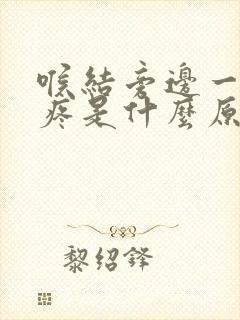 喉結旁邊一
疼是什麼原
黎紹鋒